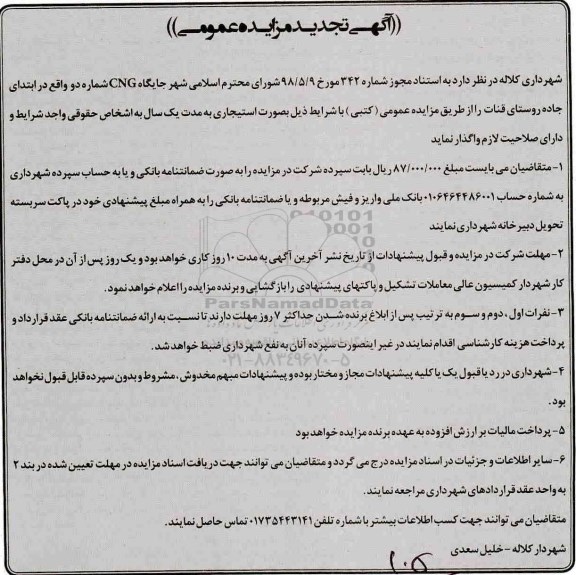 ((آگهی تجدید مزایده عمومی))
شهرداری کلاله در نظر دارد به استناد مجوز شماره ۳۴۲ مورخ ۹۸/۵/۹ شورای محترم اسلامی شهر جایگاه CNG شماره دو واقع در ابتدای
جاده روستای قنات را از طریق مزایده عمومی (کتبی) با شرایط ذیل بصورت استیجاری به مدت یک سال به اشخاص حقوقی واجد شرایط و
دارای صلاحیت لازم واگذار نماید
۱- متقاضیان می بایست مبلغ ۸۷/۰۰۰/۰۰۰ ریال بابت سپرده شرکت در مزایده را به صورت ضمانتنامه بانکی و یا به حساب سپرده شهرداری
به شماره حساب ۰۱۰۶۴۶۴۴۸۶۰۰۱ بانک ملی واریز و فیش مربوطه و یا ضمانتنامه بانکی را به همراه مبلغ پیشنهادی خود در پاکت سربسته
تحویل دبیرخانه شهرداری نمایند
۲- مهلت شرکت در مزایده و قبول پیشنهادات از تاریخ نشر آخرین آگهی به مدت ۱۰ روز کاری خواهد بود و یک روز پس از آن در محل دفتر
کار شهردار کمیسیون عالی معاملات تشکیل و پاکتهای پیشنهادی را بازگشایی و برنده مزایده را اعلام خواهد نمود.
ParsNamadData
۳- نفرات اول، دوم و سوم به ترتیب پس از ابلاغ برنده شدن حداکثر ۷ روز مهلت دارند تا نسبت به ارائه ضمانتنامه بانکی عقد قرارداد و
پرداخت هزینه کارشناسی اقدام نمایند در غیر اینصورت سپرده آنان به نفع شهرداری ضبط خواهد شد.
۰۲۱-۸۸۳۴۹۶۷۰-۵
۴- شهرداری در رد یا قبول یک یا کلیه پیشنهادات مجاز و مختار بوده و پیشنهادات مبهم مخدوش، مشروط و بدون سپرده قابل قبول نخواهد
بود.
۵- پرداخت مالیات بر ارزش افزوده به عهده برنده مزایده خواهد بود
۶- سایر اطلاعات و جزئیات در اسناد مزایده درج می گردد و متقاضیان می توانند جهت دریافت اسناد مزایده در مهلت تعیین شده در بند ۲
به واحد عقد قراردادهای شهرداری مراجعه نمایند.
متقاضیان می توانند جهت کسب اطلاعات بیشتر با شماره تلفن ۰۱۷۳۵۴۴۳۱۴۱ تماس حاصل نمایند.
شهردار کلاله - خلیل سعدی